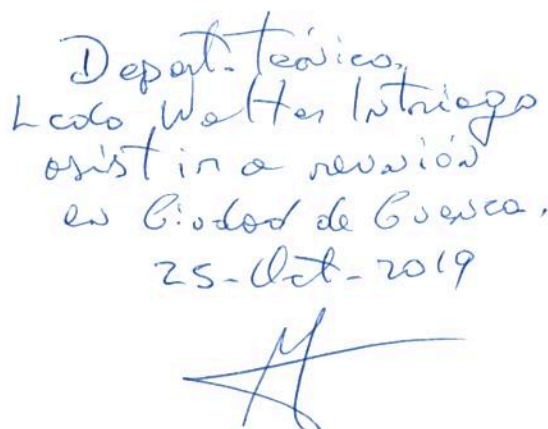 Depart. Técnico,
Lcdo Walter Intriago
asistir a reunión
en Ciudad de Cuenca.
25-Oct-2019